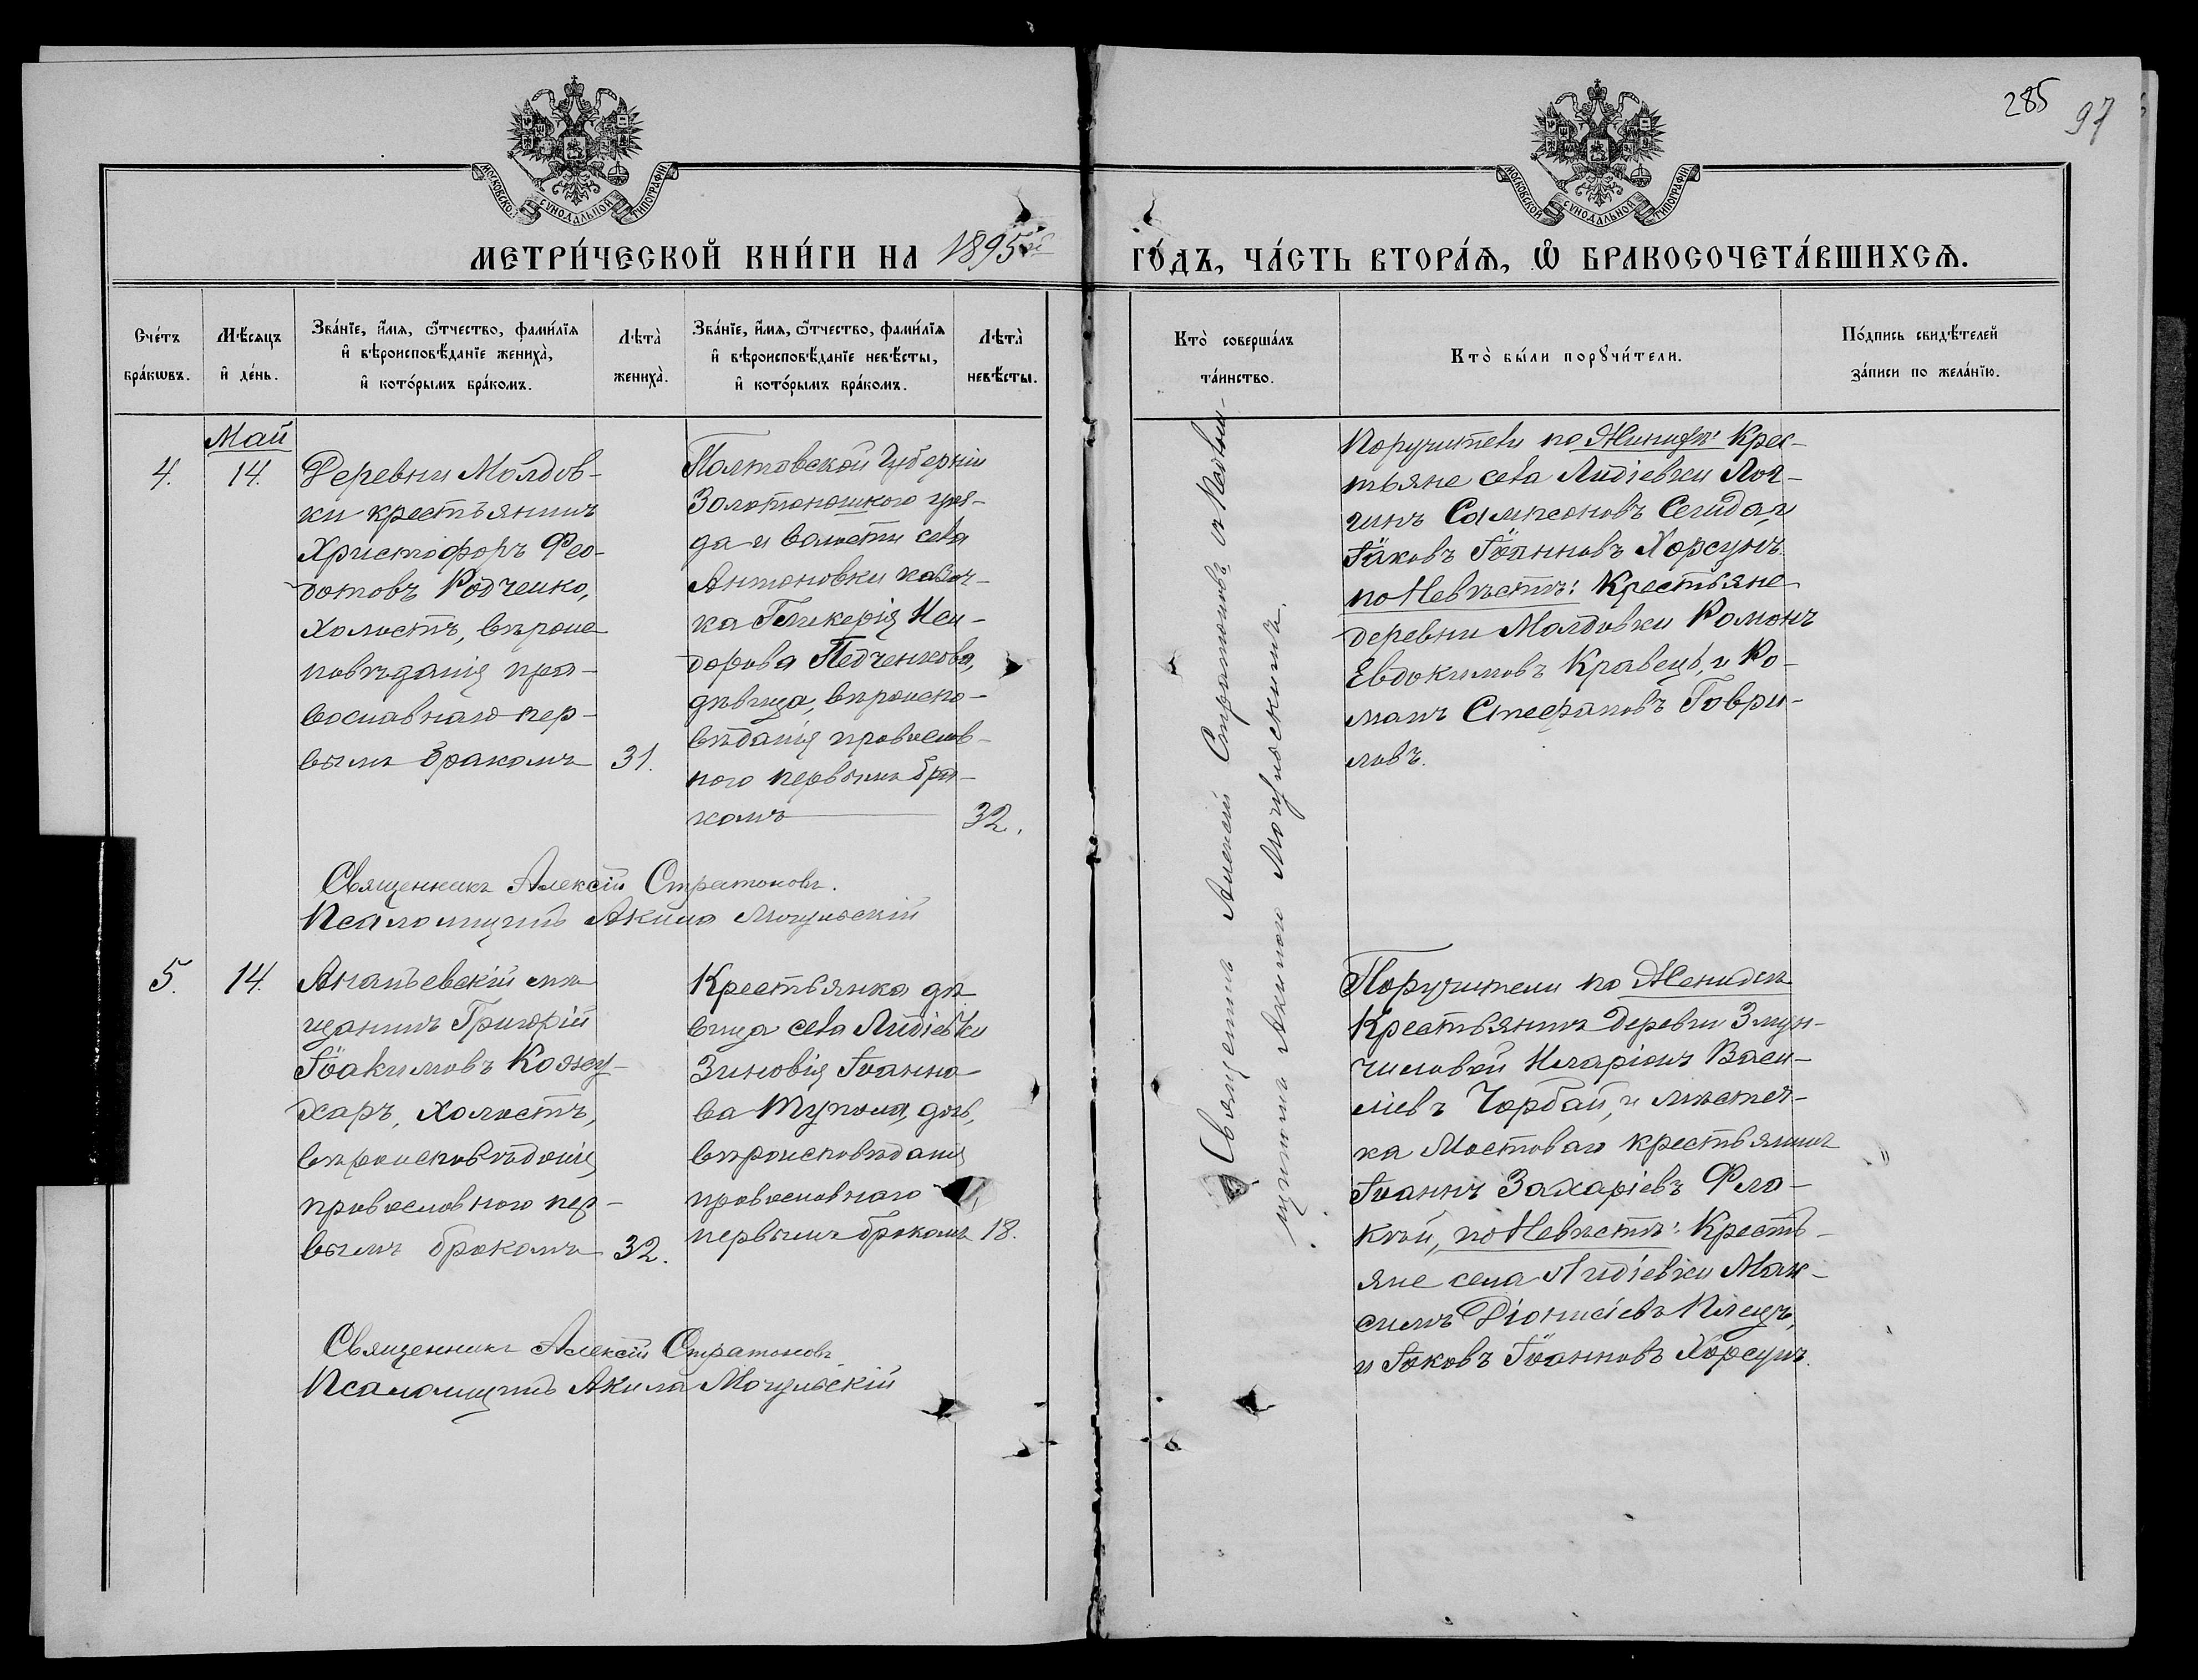 285
97
МОСКОВСКОЙ СѴНОДАЛЬНОЙ ТИПОГРАФІИ
МОСКОВСКОЙ СѴНОДАЛЬНОЙ ТИПОГРАФІИ
МЕТРИ́ЧЕСКОЙ КНИ́ГИ НА 1895ый
ГО́ДЪ, ЧА́СТЬ ВТОРА́Ѧ, Ѽ БРАКОСОЧЕТА́ВШИХСѦ.
Сче́тъ
бра́кѡвъ.
Мѣ́сѧцъ
и҆ де́нь.
Зва́нїе, и҆́мѧ, ѻ҆́тчество, фами́лїѧ
и҆ вѣроисповѣ́данїе жениха̀,
и҆ кото́рымъ бра́комъ.
Лѣта̀
жениха̀.
Зва́нїе, и҆́мѧ, ѻ҆́тчество, фами́лїѧ
и҆ вѣроисповѣ́данїе невѣ́сты,
и҆ кото́рымъ бра́комъ.
Лѣта̀
невѣ́сты.
Кто̀ соверша́лъ
та́инство.
Кто̀ бы́ли порꙋчи́тели.
По́дпись свидѣ́телей
за́писи по жела́нїю.
Май
4.
14.
Деревни Молдов-
ки крестьянинъ
Христофоръ Фео-
дотовъ Родченко,
Холостъ, вѣроис
повѣданія пра-
вославнаго пер-
вымъ бракомъ
31.
Полтавской Губерніи
Золотоношкого уѣз-
да и волости села
Антоновки казач-
ка Гликерія Иси-
дорова Педченкова,
дѣвица, вѣроиспо-
вѣданія православ-
ного первымъ бра-
комъ
32.
Поручители по Женихѣ: Крес-
тьяне села Лидіевки Лог-
гинъ Сампсоновъ и
Іаковъ Іоанновъ Хорсунъ.
по Невѣстѣ: Крестьяне
деревни Молдовки Романъ
Евдокимовъ Кравецъ, и Ро-
манъ Стефановъ Гаври-
ловъ.
Священникъ Алексій Стратоновъ.
Псаломщикъ Акила Могульскій
5.
14.
Ананьевскій мѣ
щанинъ Григорій
Іоакимовъ Кожу-
харъ, Холостъ,
вѣроисповѣданія
православного пер-
вымъ бракомъ
32.
Крестьянка дѣ
вица села Лидіевки
Зиновія Іоанно-
ва
вѣроисповѣданія
православнаго
первымъ бракомъ
18.
Поручители по Женихѣ
Крестьянинъ деревни
Иларіонъ Васи-
ліевъ Чорбай, и мѣстеч-
ка Мостоваго крестьянинъ
Іоаннъ Захаріевъ
по Невѣстѣ: Кресть-
яне села Лидіевки Мак-
симъ Діонисіевъ
и Іаковъ Іоанновъ Хорсунъ.
Священникъ Алексій Стратоновъ
Псаломщикъ Акила Могульскій
Священникъ Алексій Стратоновъ съ Псалом-
щикомъ Акилою Могульскимъ.